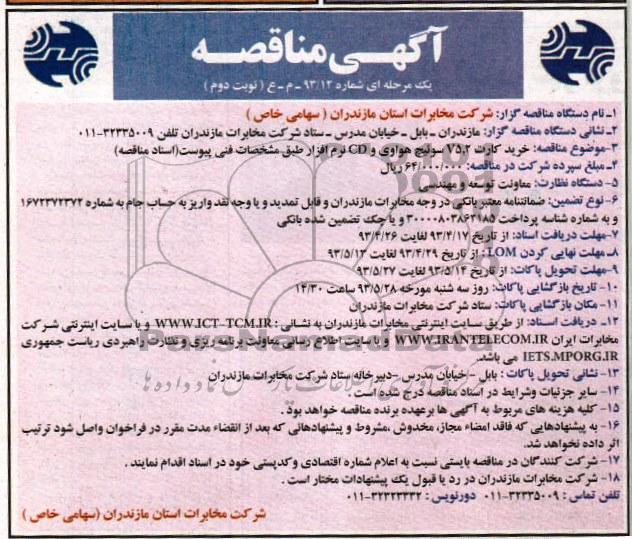 آگهی مناقصه
یک مرحله ای شماره ۹۳/۱۲ ـ م ـ ع ( نوبت دوم )
۱ـ نام دستگاه مناقصه گزار: شرکت مخابرات استان مازندران ( سهامی خاص )
۲ـ نشانی دستگاه مناقصه گزار: مازندران ـ بابل ـ خیابان مدرس ـ ستاد شرکت مخابرات مازندران تلفن ۳۲۳۳۵۰۰۹-۰۱۱
۳ـ موضوع مناقصه: خرید کارت V۵.۲ سوئیچ هواوی و CD نرم افزار طبق مشخصات فنی پیوست(اسناد مناقصه)
۴ـ مبلغ سپرده شرکت در مناقصه: ۶۴/۰۰۰/۰۰۰ ریال
۵ـ دستگاه نظارت: معاونت توسعه و مهندسی
۶ـ نوع تضمین: ضمانتنامه معتبر بانکی در وجه مخابرات مازندران و قابل تمدید و یا وجه نقد واریز به حساب جام به شماره ۱۶۷۲۳۷۲۳۷۲
و به شماره شناسه پرداخت ۳۰۰۰۰۸۰۳۸۶۳۱۸۵ و یا چک تضمین شده بانکی
۷ـ مهلت دریافت اسناد: از تاریخ ۹۳/۴/۱۷ لغایت ۹۳/۴/۲۶
۸ـ مهلت نهایی کردن LOM: از تاریخ ۹۳/۴/۲۹ لغایت ۹۳/۵/۱۳
۹ـ مهلت تحویل پاکات: از تاریخ ۹۳/۵/۱۴ لغایت ۹۳/۵/۲۷
۱۰ـ تاریخ بازگشایی پاکات: روز سه شنبه مورخه ۹۳/۵/۲۸ ساعت ۱۴/۳۰
۱۱ـ مکان بازگشایی پاکات: ستاد شرکت مخابرات مازندران
۱۲ـ دریافت اسناد: از طریق سایت اینترنتی مخابرات مازندران به نشانی : WWW.ICT-TCM.IR و یا سایت اینترنتی شرکت
مخابرات ایران WWW.IRANTELECOM.IR و یا سایت اطلاع رسانی معاونت برنامه ریزی و نظارت راهبردی ریاست جمهوری
IETS.MPORG.IR می باشد.
۱۳ـ نشانی تحویل پاکات : بابل ـ خیابان مدرس ـ دبیرخانه ستاد شرکت مخابرات مازندران
۱۴ـ سایر جزئیات وشرایط در اسناد مناقصه درج شده است .
۱۵ـ کلیه هزینه های مربوط به آگهی ها برعهده برنده مناقصه خواهد بود .
۱۶ـ به پیشنهادهایی که فاقد امضاء مجاز، مخدوش ،مشروط و پیشنهادهائی که بعد از انقضاء مدت مقرر در فراخوان واصل شود ترتیب
اثر داده نخواهد شد.
۱۷ـ شرکت کنندگان در مناقصه بایستی نسبت به اعلام شماره اقتصادی وکدپستی خود در اسناد اقدام نمایند .
۱۸ـ شرکت مخابرات مازندران در رد یا قبول یک پیشنهادات مختار است .
تلفن تماس : ۳۲۳۳۵۰۰۹-۰۱۱ دورنویس : ۳۲۳۲۳۳۳۲-۰۱۱
شرکت مخابرات استان مازندران (سهامی خاص )
ParsNamadData